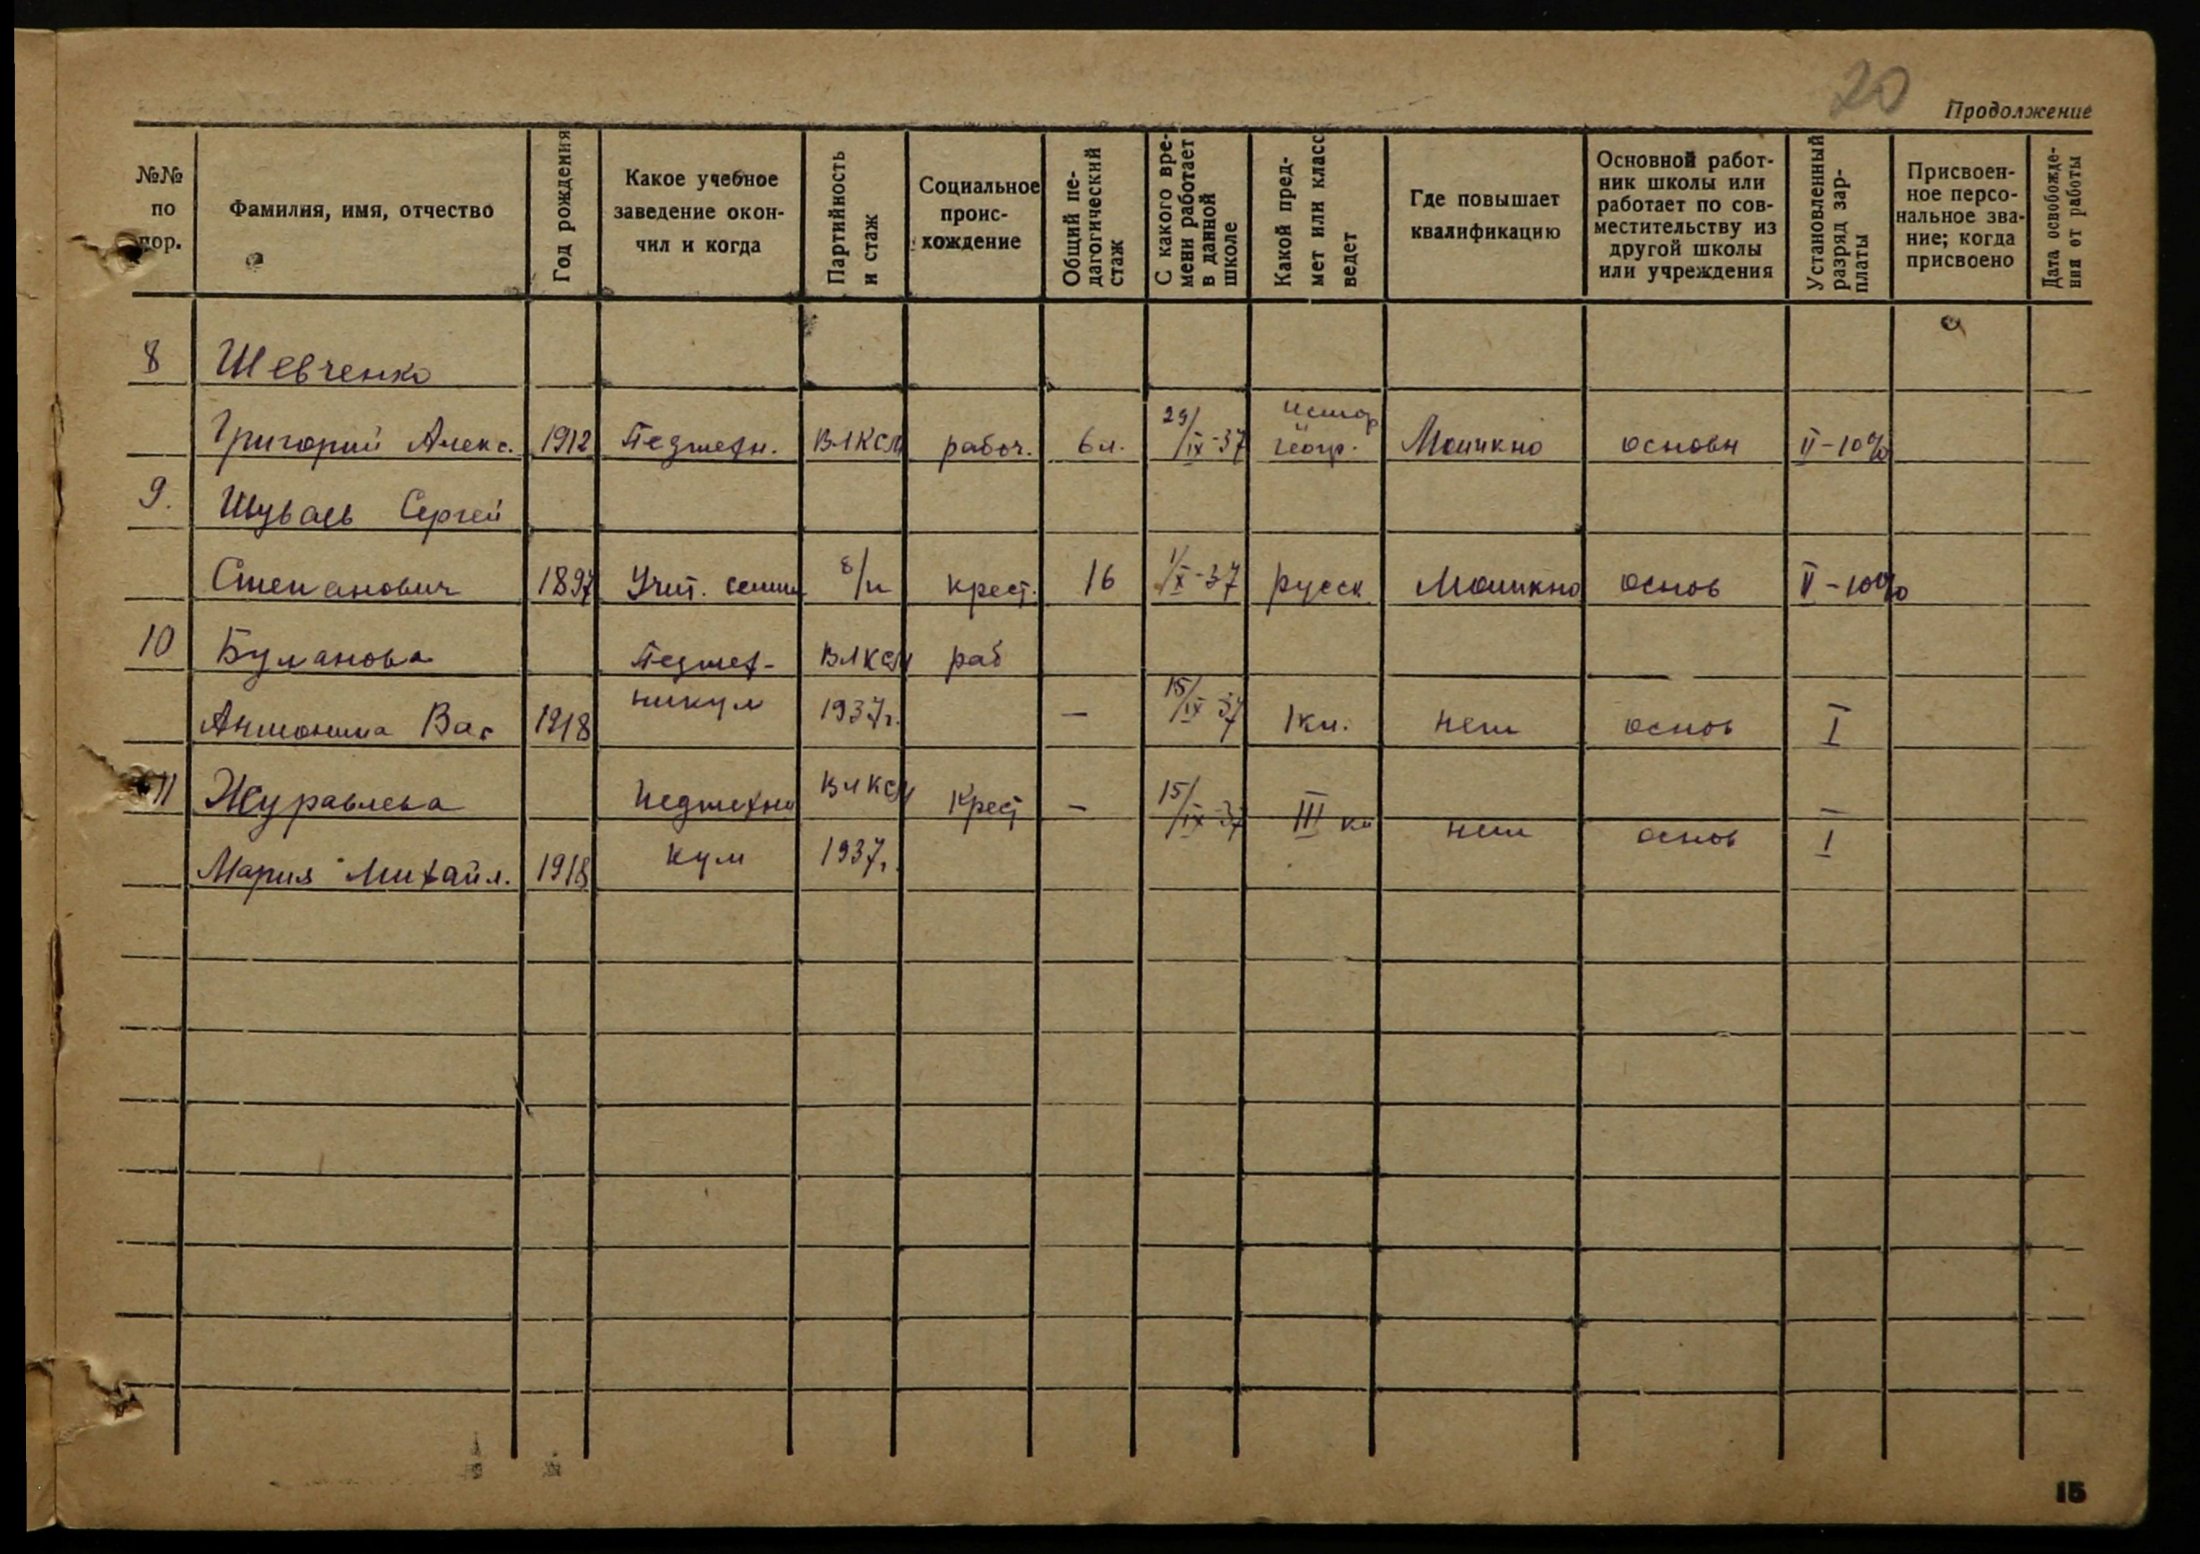 20
Продолжение
№№ по пор.
Фамилия, имя, отчество
Год рождения
Какое учебное заведение окончил и когда
Партийность и стаж
Социальное происхождение
Общий педагогический стаж
С какого времени работает в данной школе
Какой предмет или класс ведет
Где повышает квалификацию
Основной работник школы или работает по совместительству из другой школы или учреждения
Установленный разряд зарплаты
Присвоенное персональное звание; когда присвоено
Дата освобождения от работы
8 Шевченко
истор
Григорий Алекс. 1912 Педтехн. ВЛКСМ рабоч. 6 л. 29/IX-37 геогр. основн II-10%
9. Шуваев Сергей
Степанович 1897 Учит. семин б/п крест. 16 1/X-37 русск основ V-10%
10 Буланова Педтех- ВЛКСМ раб
никум 1937г.
Антонина Вас 1918 — 15/IX 37 1 кл. нет основ I
11 Журавлева Педтехни ВЛКСМ Крест — 15/IX-37 III кл нет основ I
Мария Михайл. 1918 кум 1937г.
15